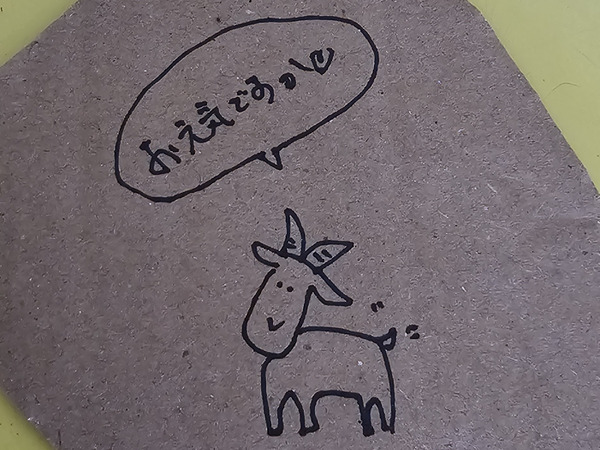 お元気ですか♡